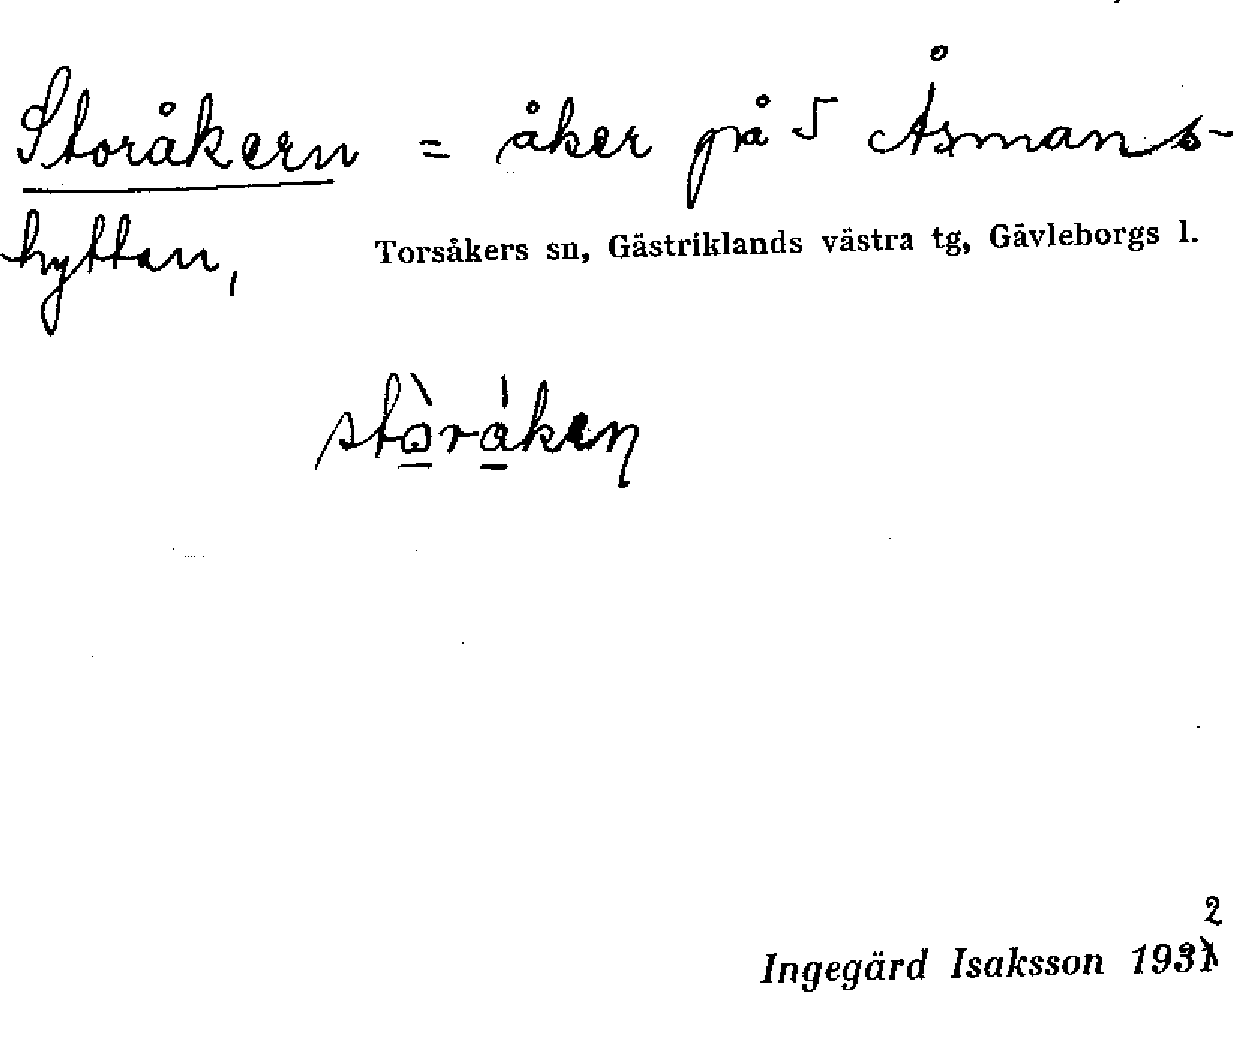 Storåkern = åker på 5 Åsmans-
hyttan, Torsåkers sn, Gästriklands västra tg, Gävleborgs l.
stòråken
2
Ingegärd Isaksson 1931